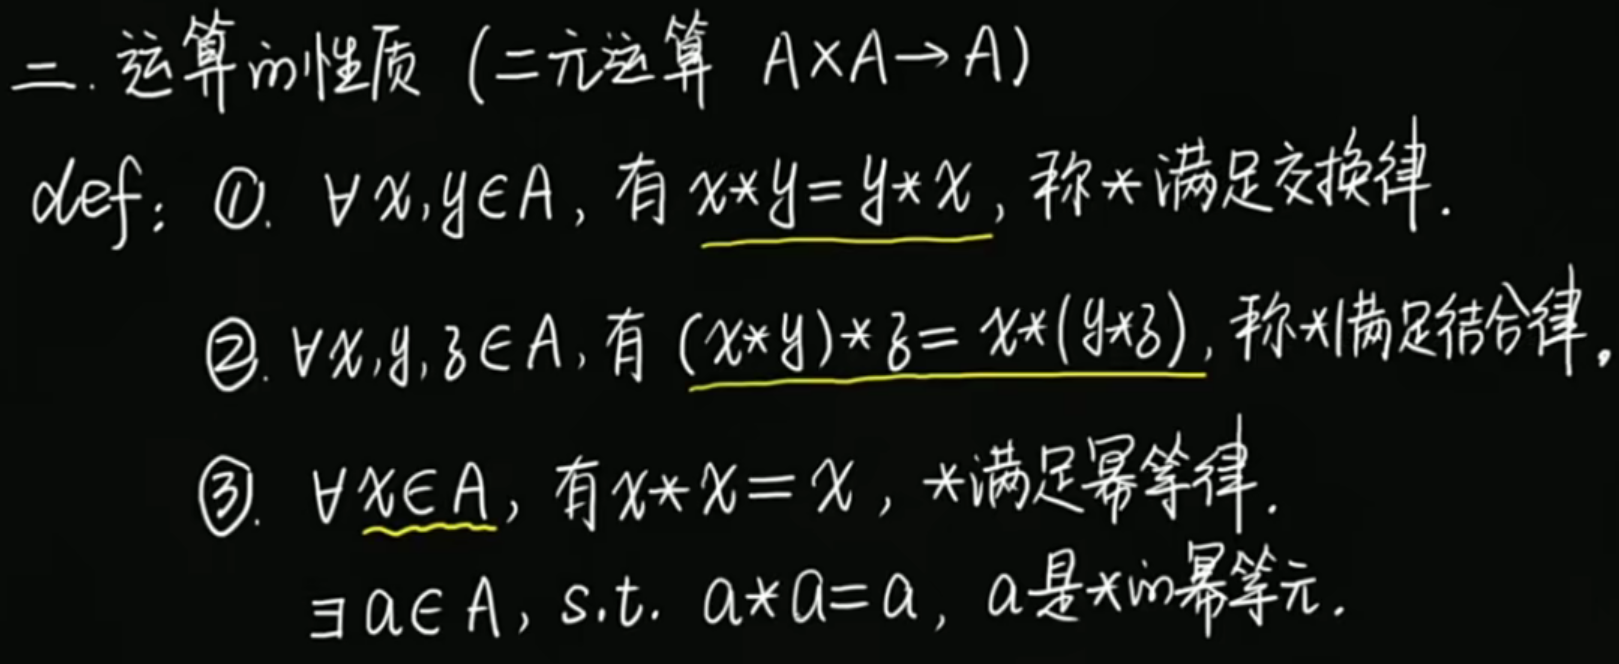 二. 运算的性质 (二元运算 A×A→A)
def: ①. ∀x,y∈A, 有 x*y=y*x, 称*满足交换律.
②. ∀x,y,z∈A, 有 (x*y)*z=x*(y*z), 称*满足结合律.
③. ∀x∈A, 有x*x=x, *满足幂等律.
∃a∈A, s.t. a*a=a, a是*的幂等元.